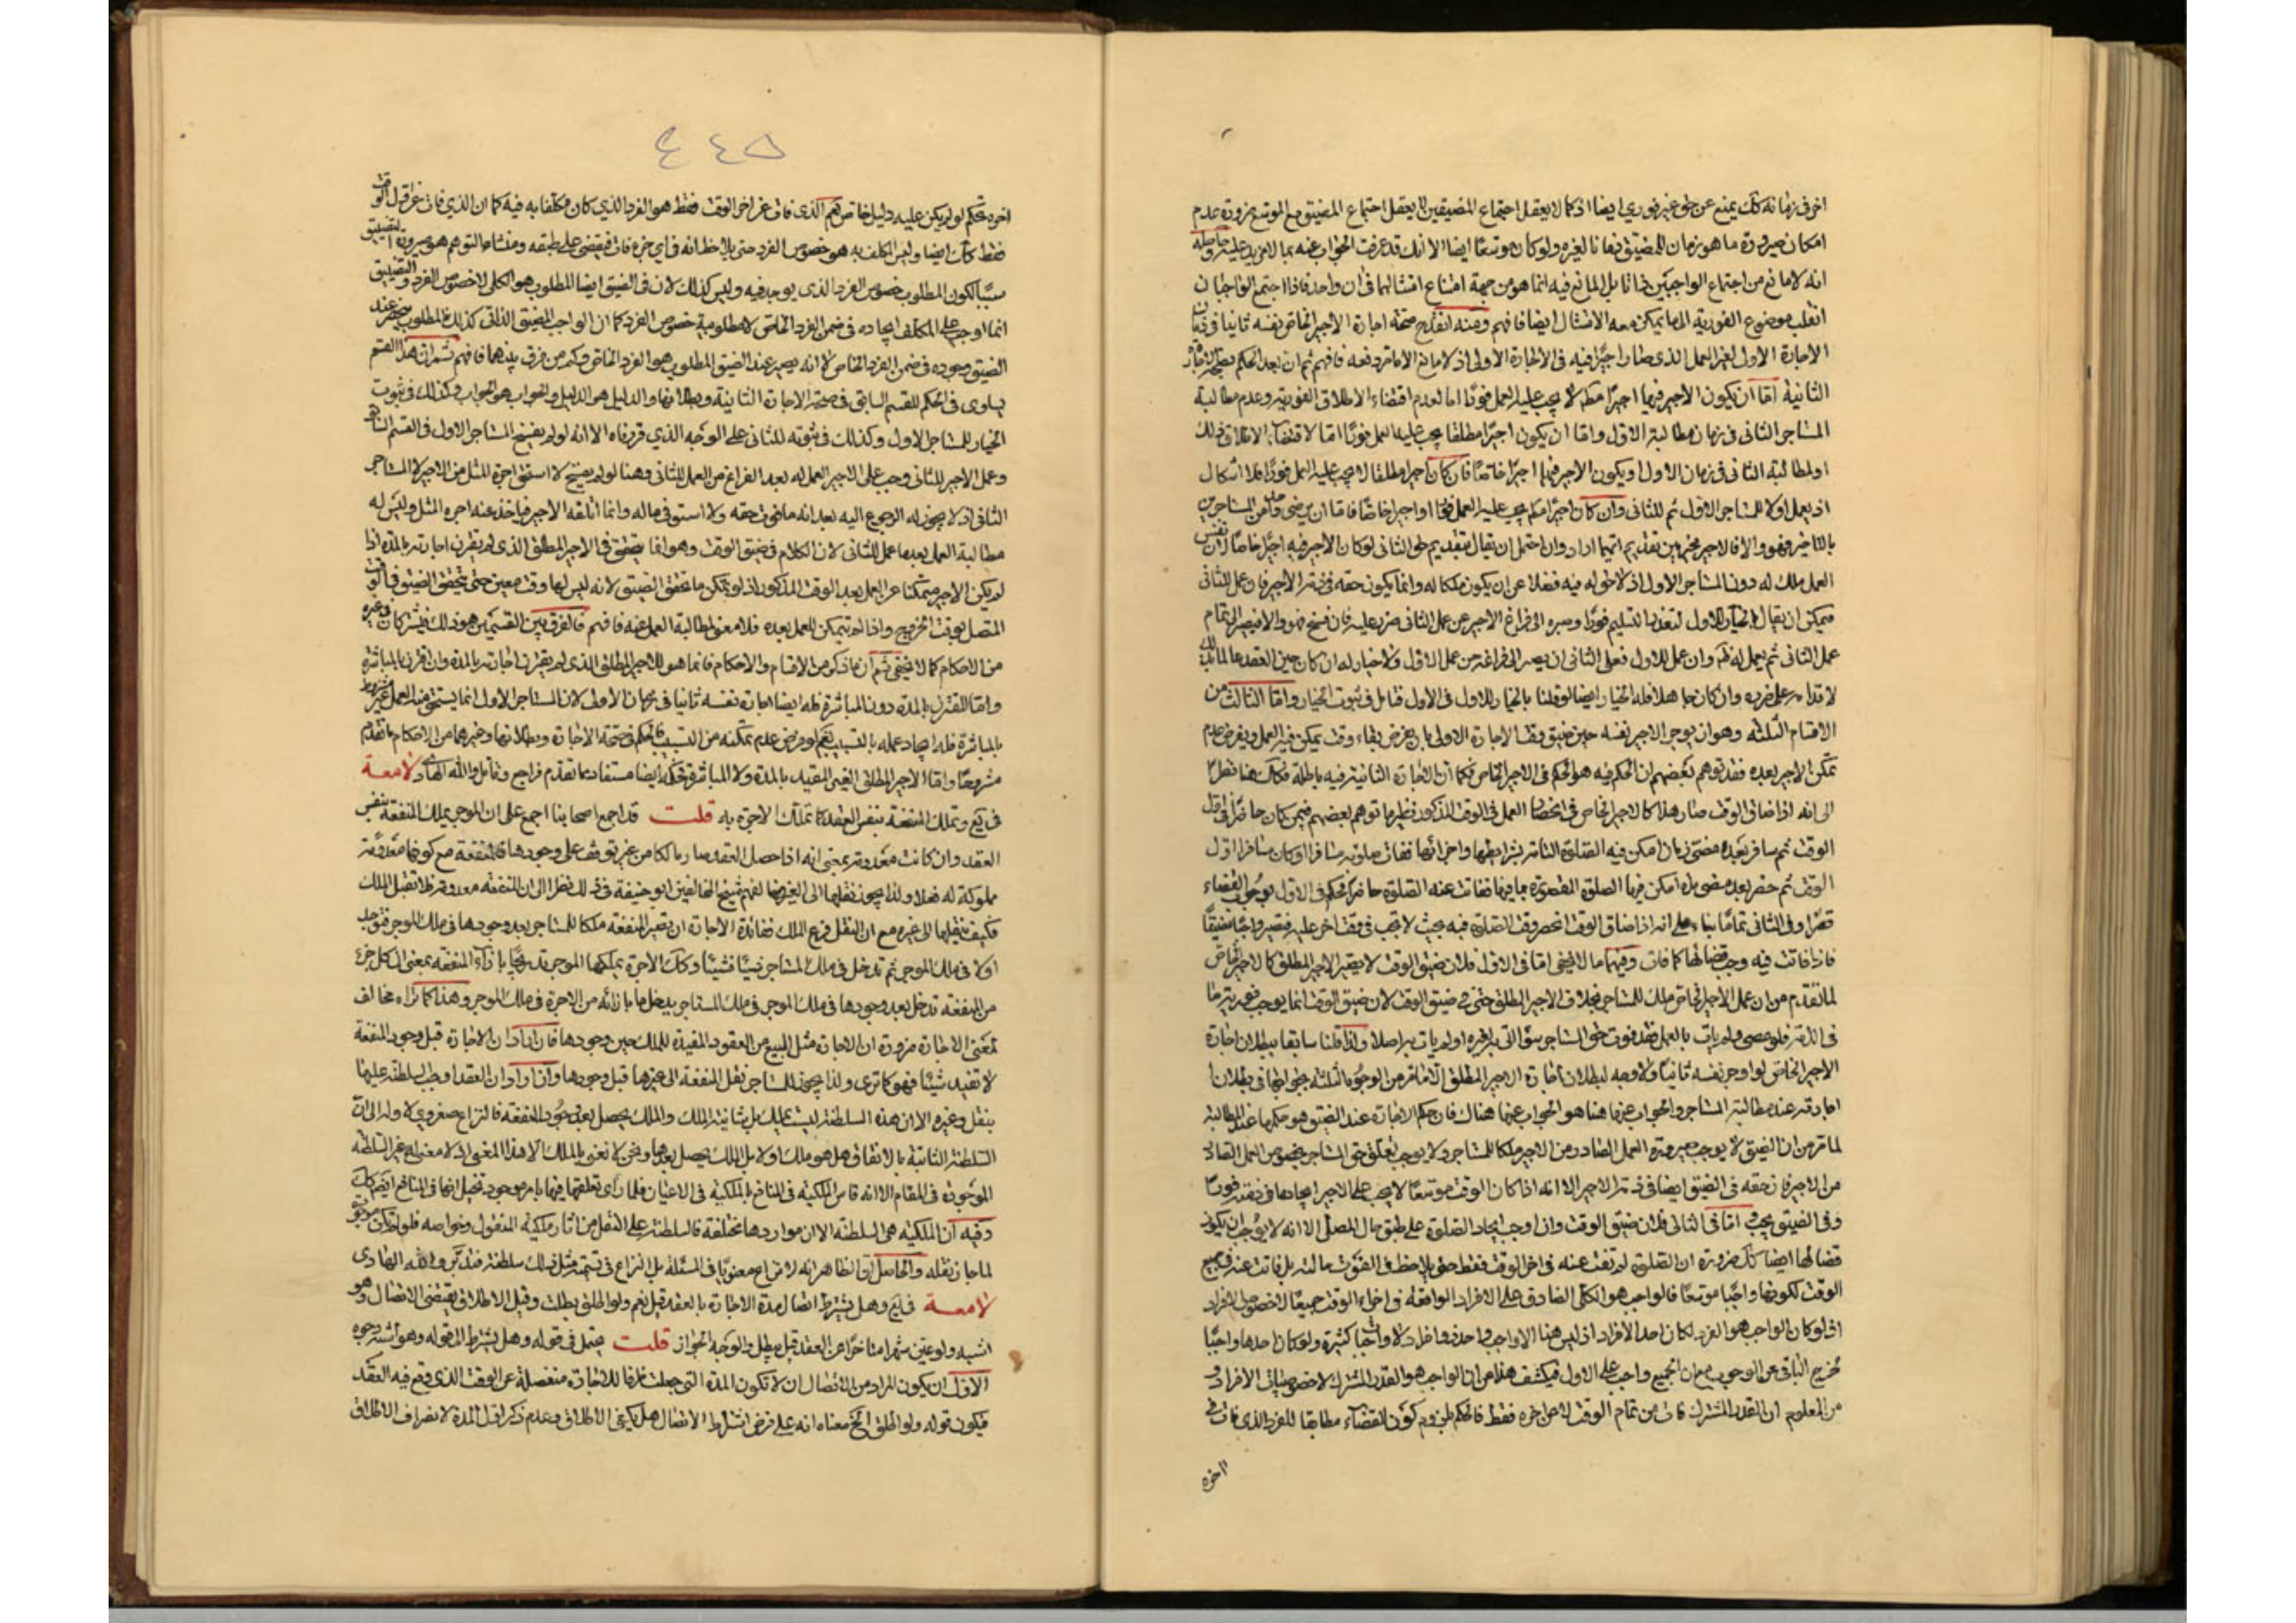 اخر في زمانه كك يمنع عن حق غير فوري ايضا اذ كما لا يعقل اجتماع المضيقين لا يعقل اجتماع المضيق مع الموسع ضرورة عدم
امكان صيرورة ما هو زمان للمضيق زمانا لغيره ولو كان موسعا ايضا الا انك قد عرفت الجواب عنه بما لا مزيد عليه وحاصله
انه لا مانع من اجتماع الواجبين ذاتا بل المانع فيه انما هو من جهة امتناع امتثالهما في ان واحد فاذا اجتمع الواجبان
انقلب موضوع الفورية الى ما يمكن معه الامتثال ايضا فافهم ومنه انقدح صحة اجارة الاجير الخاص نفسه ثانيا في زمان
الاجارة الاولى لغير العمل الذي صار اجيرا فيه في الاجارة الاولى اذ لا مانع الا ما مر دفعه فافهم ثم ان بعد الحكم بصحة الاجارة
الثانية اما ان يكون الاجير فيهما اجيرا مط لا يجب عليه العمل فورا اما لعدم اقتضاء الاطلاق الفورية وعدم مطالبة
المستاجر الثاني في زمان مطالبة الاول واما ان يكون اجيرا مطلقا يجب عليه العمل فورا اما لاقتضاء الاطلاق ذلك
او لمطالبة الثاني في زمان الاول او يكون الاجير فيهما اجيرا خاصا فان كان اجيرا مطلقا لا يجب عليه العمل فورا فلا اشكال
اذ يعمل اولا للمستاجر الاول ثم للثاني وان كان اجيرا مط يجب عليه العمل فورا او اجيرا خاصا فاما ان يرضى من المستاجرين
بالتاخير فهو والا فالاجير مخير بين تقديم ايهما اراد وان احتمل ان يقال بتقديم حق الثاني لو كان الاجير فيه اجيرا خاصا لان نفس
العمل ملك له دون المستاجر الاول اذ لا حق له فيه فضلا عن ان يكون ملكا له وانما يكون حقه في ذمة الاجير فان عمل للثاني
فيمكن ان يقال بالخيار للاول لتعذر التسليم فورا وصبره الى فراغ الاجير عن عمل الثاني ضرر عليه فان فسخ فهو والا فيصبر الى تمام
عمل الثاني ثم يعمل له وان عمل للاول فعلى الثاني ان يصبر الى فراغه من عمل الاول ولا خيار له ان كان حين العقد عالما بذلك
لاقدامه على ضرره وان كان جاهلا فله الخيار ايضا لو قلنا بالخيار للاول في الاول فتامل في ثبوت الخيار واما الثالث من
الاقسام الثلثة وهو ان يوجر الاجير نفسه حين ضيق وقت الاجارة الاولى بان يفرض بقاء وقت يمكن فيه العمل ويفرض عدم
تمكن الاجير بعده فقد توهم بعضهم ان الحكم فيه هو الحكم في الاجير الخاص فكما ان الاجارة الثانية فيه باطلة فكك هنا نظرا
الى انه اذا ضاق الوقت صار هذا كالاجير الخاص في انحصار العمل في الوقت المذكور نظير ما توهم بعضهم فيمن كان حاضرا في اول
الوقت ثم سافر بعده مضى زمان امكن فيه الصلوة التامة بشرائطها واجزائها ففات صلوته مسافرا او كان مسافرا اول
الوقت ثم حضر بعد مضى مدة امكن فيها الصلوة المقصورة بما فيها ففاتت عنه الصلوة حاضرا فحكم في الاول بوجوب القضاء
قصرا وفي الثاني تماما بناء على انه اذا ضاق الوقت انحصر وقت الصلوة فيه بحيث لا تجب في وقت اخر عليه فتصير واجبا مضيقا
فاذا فاتت فيه وجب قضائها كما فات وفيهما ما لا يخفى اما في الاول فلان ضيق الوقت لا يصير الاجير المطلق كالاجير الخاص
لما تقدم من ان عمل الاجير الخاص ملك للمستاجر بخلاف الاجير المطلق حتى في ضيق الوقت لان ضيق الوقت انما يوجب فورية ما
في الذمة فلو عصى ولم يات بالعمل فقد فوت حق المستاجر سواء اتى بغيره او لم يات به اصلا ولذا قلنا سابقا ببطلان اجارة
الاجير الخاص لو اوجر نفسه ثانيا ولا وجه لبطلان اجارة الاجير المطلق الا ما مر من الوجوه الثلثة بجوابها في بطلان
اجارته عند مطالبة المستاجر والجواب عنها هنا هو الجواب عنها هناك فان حكم الاجارة عند الضيق هو حكمها عند المطالبة
لما مر من ان الضيق لا يوجب صيرورة العمل الصادر من الاجير ملكا للمستاجر ولا يوجب تعلق حق المستاجر بخصوص العمل الصادر
من الاجير فان حقه في الضيق ايضا في ذمة الاجير الا انه اذا كان الوقت موسعا لا يجب على الاجير ايجاد ما في ذمته فورا
وفي الضيق يجب اما في الثاني فلان ضيق الوقت وان اوجب ايجاد الصلوة على طبق حال المصلي الا انه لا يوجب ان يكون
قضائها ايضا كك ضرورة ان الصلوة لم تفت عنه في اخر الوقت فقط حتى يلاحظ في الفوت حالته بل فاتت عنه في جميع
الوقت لكونها واجبا موسعا فالواجب هو الكلي الصادق على الافراد الواقعة في اجزاء الوقت جميعا لا خصوص الافراد
اذ لو كان الواجب هو الفرد لكان احد الافراد اذ ليس هنا الا واجب واحد ذو افراد لا واجبا كثيرة ولو كان احدها واجبا
لخرج الباقي عن الوجوب مع ان الجميع واجب على الاول فيكشف هذا من ان الواجب هو القدر المشترك لا خصوصيات الافراد و
من المعلوم ان القدر المشترك فات من تمام الوقت لا من اخره فقط فالحكم بلزوم كون القضاء مطابقا للفرد الذي فات في
اخره
٤٤٥
اخره تحكم لو لم يكن عليه دليل خاص نعم الذي فات عن اخر الوقت فقط هو الفرد الذي كان مكلفا به فيه كما ان الذي فات عن اول الوقت
فقط كك ايضا وليس المكلف به هو خصوص الفرد حتى يلاحظ انه في اي جزء فات فيقضى على طبقه ومنشاء التوهم هو صيرورة التضييق
سببا لكون المطلوب خصوص الفرد الذي يوجد فيه وليس كذلك لان في الضيق ايضا المطلوب هو الكلي لا خصوص الفرد والتضييق
انما اوجب على المكلف ايجاده في ضمن الفرد الخاص لا مطلوبية خصوص الفرد كما ان الواجب المضيق الذاتي كذلك فالمطلوب ينحصر عند
الضيق وجوده في ضمن الفرد الخاص لا انه يصير عند الضيق المطلوب هو الفرد الخاص وكم من فرق بينهما فافهم ثم ان هذا القسم
يساوى في الحكم للقسم السابق في صحة الاجارة الثانية وبطلانها والدليل هو الدليل والجواب هو الجواب وكذلك في ثبوت
الخيار للمستاجر الاول وكذلك في ثبوته للثاني على الوجه الذي قررناه الا انه لو لم يفسخ المستاجر الاول في القسم الثاني
وعمل الاجير للثاني وجب على الاجير العمل له بعد الفراغ من العمل للثاني وهنا لو لم يفسخ لا استحق اجرة المثل من الاجير لا المستاجر
الثاني اذ لا يجوز له الرجوع اليه بعد انه ما فوت حقه ولا استوفى ماله وانما اتلفه الاجير فياخذ عنه اجرة المثل وليس له
مطالبة العمل بعد ما عمل للثاني لان الكلام في ضيق الوقت وهو انما يتحقق في الاجير المطلق الذي لم يقترن اجارته بالمدة اذا
لم يكن الاجير متمكنا عن العمل بعد الوقت المذكور اذ لو تمكن ما تحقق الضيق لانه ليس لها وقت معين حتى يتحقق الضيق في الوقت
المتصل بوقت الخروج واذا لم يتمكن للعمل بعده فلا معنى لمطالبة العمل عنه فافهم فالفرق بين القسمين هو ذلك فيشتركان في غيره
من الاحكام كما لا يخفى ثم ان ما ذكر من الاقسام والاحكام فانما هو للاجير المطلق الذي لم يقترن اجارته بالمدة وان اقترن بالمباشرة
واما المقترن بالمدة دون المباشرة فله ايضا اجارة نفسه ثانيا في زمان الاولى لان المستاجر الاول انما يستحق منه العمل غير مشروط
بالمباشرة فله ايجاد عمله بالتسبيب نعم لو فرض عدم تمكنه من التسبيب فالحكم في صحة الاجارة وبطلانها وغيرهما من الاحكام ما تقدم
مشروحا واما الاجير المطلق الغير المقيد بالمدة ولا المباشرة فحكمه ايضا مستفاد مما تقدم فراجع وتامل والله الهادي لامعة
في يع وتملك المنفعة بنفس العقد كما تملك الاجرة به قلت قد اجمع اصحابنا اجمع على ان الموجر يملك المنفعة بنفس
العقد وان كانت معدومة بمعنى انه اذا حصل العقد صار مالكا من غير توقف على وجودها فالمنفعة مع كونها معدومة
مملوكة له فعلا ولذا يجوز نقلها الى الغير خلافا لشيخ المخالفين ابو حنيفة في ذلك نظرا الى ان المنفعة معدومة فلا تقبل الملك
فكيف ينقلها الى غيره مع ان النقل فرع الملك ففائدة الاجارة ان تصير المنفعة ملكا للمستاجر بعد وجودها في ملك الموجر فتوجد
اولا في ملك الموجر ثم تدخل في ملك المستاجر شيئا فشيئا وكك الاجرة يملكها الموجر تدريجا بازاء المنفعة بمعنى ان كل جزء
من المنفعة تدخل بعد وجودها في ملك الموجر في ملك المستاجر يدخل ما بازائه من الاجرة في ملك الموجر وهذا كما تراه مخالف
لمعنى الاجارة ضرورة ان الاجارة مثل البيع من العقود المفيدة للملك حين وجودها فان اراد ان الاجارة قبل وجود المنفعة
لا تفيد شيئا فهو كما ترى ولذا يجوز للمستاجر نقل المنفعة الى غيرها قبل وجودها وان اراد ان العقد اوجب السلطنة عليها
بنقل وغيره الا ان هذه السلطنة ليست بملك بل شانية الملك والملك يحصل بعد وجود المنفعة فالنزاع صغروي لاوله الى ان
السلطنة الثابتة بالاتفاق هل هو ملك اولا بل الملك يحصل بعدها ونحن لا نعني بالملك الا هذا المعنى اذ لا معنى له غير السلطنة
الموجودة في المقام الا انه قاس الملكية في المنافع بالملكية في الاعيان فلما راى تعلقها فيها بامر موجود تخيل انها في المنافع ايضا كك
وفيه ان الملكية هي السلطنة الا ان مواردها مختلفة فالسلطنة على النقل من اثار ملكية المنقول وخواصه فلو لم تكن موجودة
لما جاز نقله والحاصل ان الظاهر انه لا نزاع معنويا في المسئلة بل النزاع في تسمية مثل ذلك سلطنة فتدبر والله الهادي
لامعة في يع وهل يشترط اتصال مدة الاجارة بالعقد قيل نعم ولو اطلق بطلت وقيل الاطلاق يقتضي الاتصال وهو
اشبه ولو عين شهرا متاخرا عن العقد قيل يبطل والوجه الجواز قلت يحتمل في قوله وهل يشترط الى قوله وهو اشبه وجوه
الاول ان يكون المراد من الاتصال ان لا تكون المدة التي جعلت ظرفا للاجارة منفصلة عن الوقت الذي وقع فيه العقد
فيكون قوله ولو اطلق الخ معناه انه على فرض اشتراط الاتصال هل يكفي الاطلاق وعدم ذكر اول المدة لانصراف الاطلاق